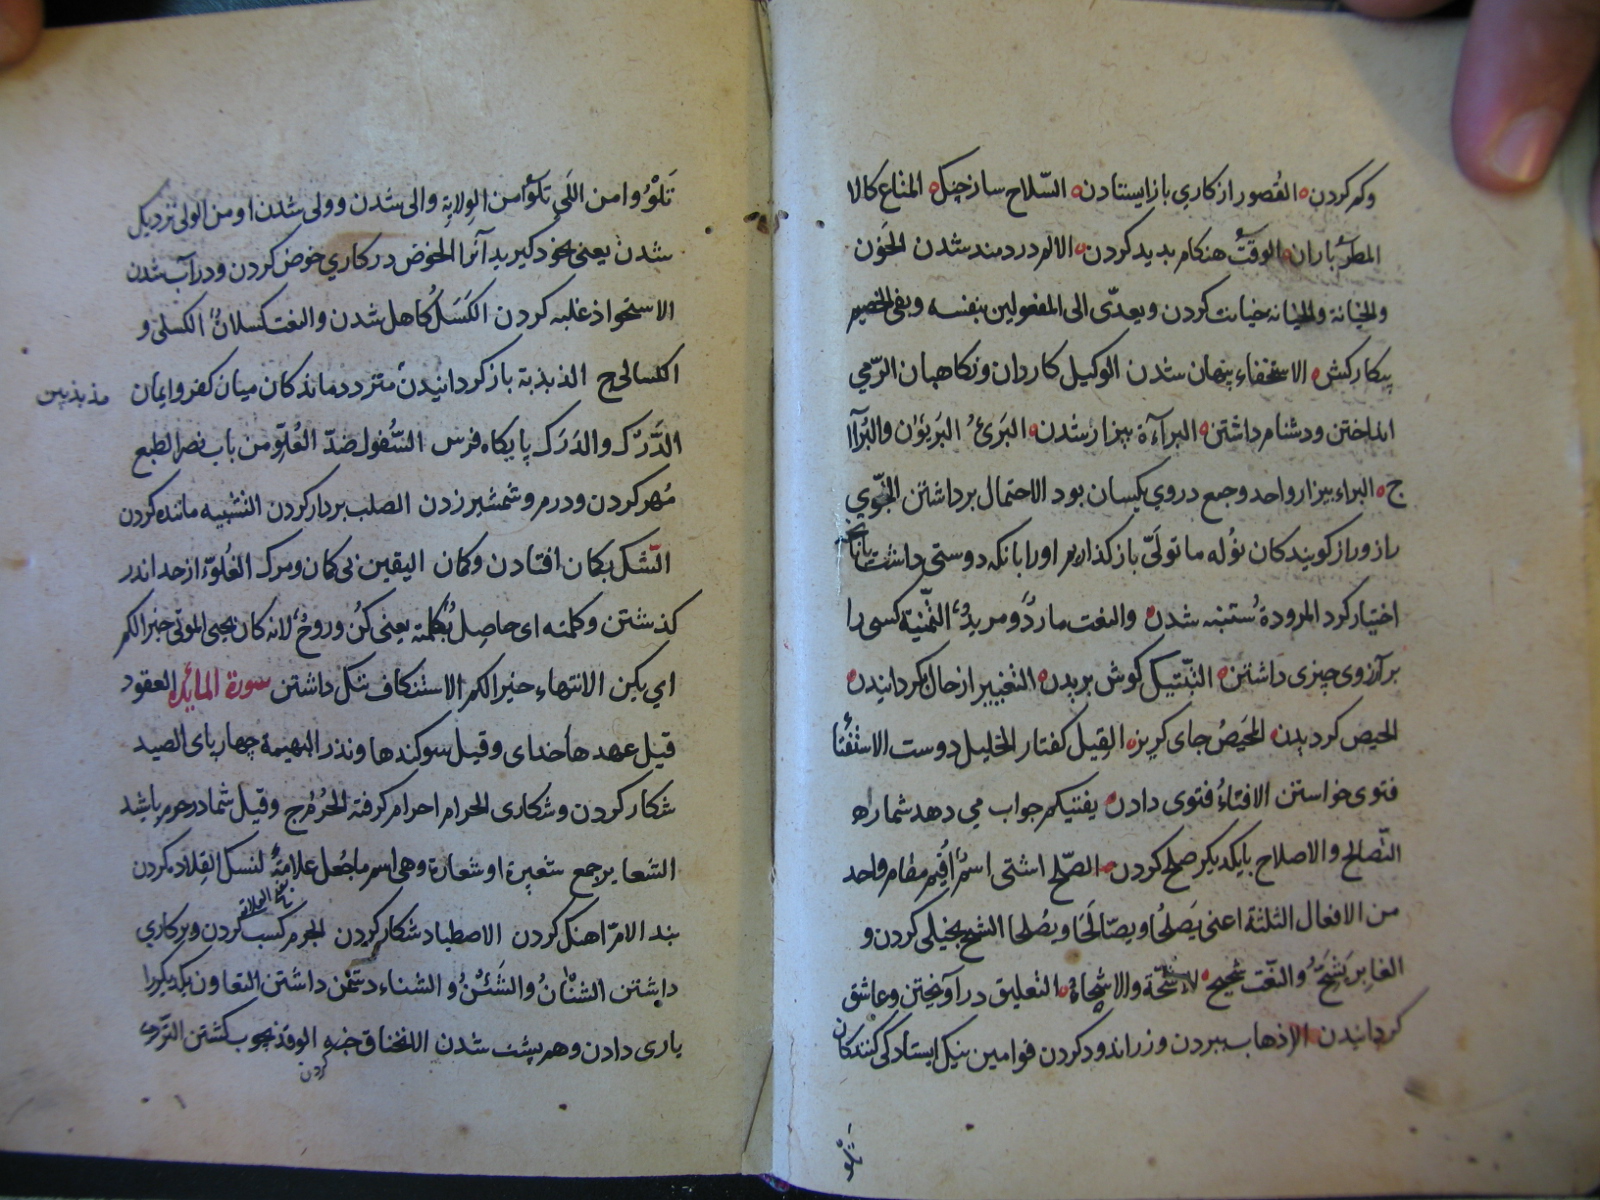 وکم کردن القُصور از کاری باز ایستادن السّلاح ساز جنک المتاع کالا
المطرُ باران الوقتُ هنکام پدید کردن الالم دردمند شدن الخَوْن
والخیانة والخیانه خیانت کردن ویعدّی الی المفعولین بنفسه وبفی الخصیم
پیکار کش الاستخفاء پنهان شدن الوکیل کاردان ونکاهبان الرّمی
انداختن ودشنام داشتن البرآءة بیزار شدن البَریُٔ البَریؤن والبُرآا
ج البراء بیزار واحد وجمع دروی یکسان بود الاحتمال برداشتن النّجوی
راز وراز کویندکان نُوَلّه ما تولّی باز کذاریم اورا بانکه دوستی داشت یا آنکه
اختیار کرد المرودة سُتنبه شدن والنعت ماردٌ ومریدٌ التّمنیة کسی را
بر آرزوی چیزی داشتن التّبتیک کوش بریدن التغییر از حال بکردانیدن
الحیص کردیدن المَحیصُ جای کریز القیل کفتار الخلیل دوست الاستفتأ
فتوی خواستن الافتاءُ فتوی دادن یفتیکم جواب می دهد شمارا
التّصالح والاصلاح بایکدیکر صلح کردن الصّلح اشتی اسمٌ اُقیم مقام واحد
من الافعال الثلثة اعنی یَصلحُا ویصّالَحَا ویصُلحا الشح بخیلی کردن و
الغابر یَشَحُّ والنّعت شحیح الاشحّة والاشحاء التعلیق درآویختن وعاشق
کردانیدن الاذهاب ببردن وزراندود کردن قوامین نیک ایستادکی کنندکان
تلو
تَلوْوُا من اللَی تلوُا من الوِلایة والی شدن وولی شدن او من الولی نزدیک
شدن یعنی بخود کیرید آنرا الخوض درکاری خوض کردن ودرآب شدن
الاستحواذ غلبه کردن الکَسَل کاهل شدن والنعت کسلانُ الکسلی و
الکسالی ج الذبذبة باز کردانیدن متردد ماندکان میان کفر وایمان
مذبذبین
الدَّرْک والدَرَک پایکاه فرس السُّفول ضدّ العُلوّ من باب نصر الطبع
مُهر کردن ودرم وشمشیر زدن الصلب بردار کردن التشبیه مانده کردن
الشّک بکان افتادن وکان الیقین بی کان ومرک الغُلوّ از حد اندر
کذشتن وکلمته ای حاصل بُکلمته یعنی کُن وروحٌ لانه کان یحیی الموتی خیرا لکم
ای یکن الانتهاء خیرا لکم الاستنکاف ننک داشتن سورة المائده العقود
قیل عهدهأ خدای وقیل سوکندها ونذر البهیمة چهارپای الصید
شکار کردن وشکاری الحرام احرام کرفته الحُرُم ج وقیل شما در حرم باشد
الشعایر جمع شعیرة او شعارة وهی اسم ما جُعل علامةً لنسک القِلاد کردن
بند الامّ اهنک کردن الاصطیاد شکار کردن الجرم کسب کردن وبرکاری
داشتن الشنْاٰنُ والشَنَئْنُ والشناء دشمن داشتن التعاون یکدیکررا
یاری دادن وهم پشت شدن الانخناق خبه الوقذ بچوب کشتن التردّی
کردن